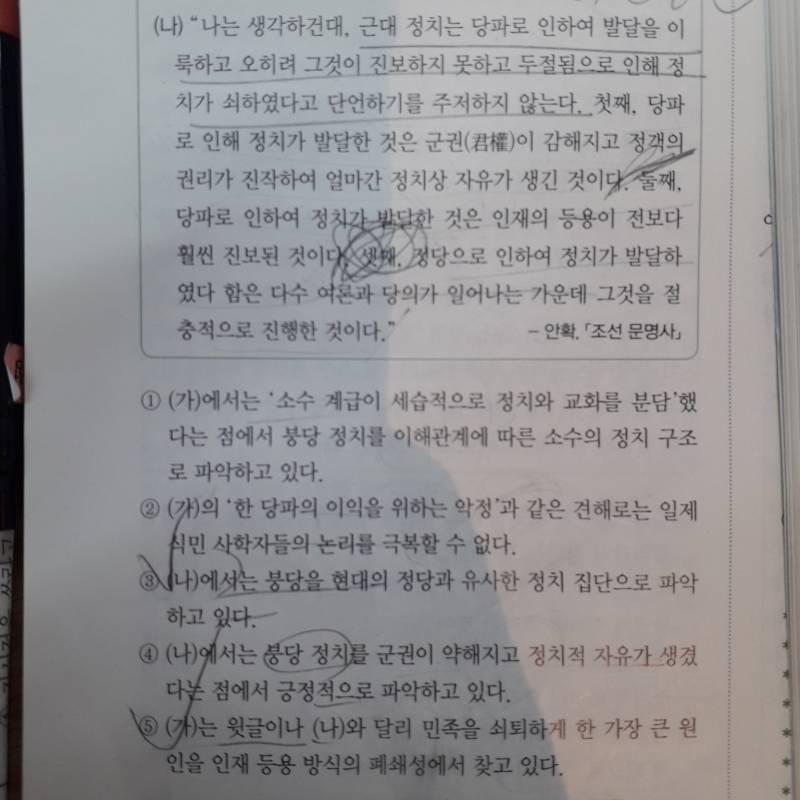 (나) “나는 생각하건대, 근대 정치는 당파로 인하여 발달을 이
룩하고 오히려 그것이 진보하지 못하고 두절됨으로 인해 정
치가 쇠하였다고 단언하기를 주저하지 않는다. 첫째, 당파
로 인해 정치가 발달한 것은 군권(君權)이 감해지고 정객의
권리가 진작하여 얼마간 정치상 자유가 생긴 것이다. 둘째,
당파로 인하여 정치가 발달한 것은 인재의 등용이 전보다
훨씬 진보된 것이다. 셋째, 정당으로 인하여 정치가 발달하
였다 함은 다수 여론과 당의가 일어나는 가운데 그것을 절
충적으로 진행한 것이다.”
– 안확, 「조선 문명사」
① (가)에서는 ‘소수 계급이 세습적으로 정치와 교화를 분담’했
다는 점에서 붕당 정치를 이해관계에 따른 소수의 정치 구조
로 파악하고 있다.
② (가)의 ‘한 당파의 이익을 위하는 악정’과 같은 견해로는 일제
식민 사학자들의 논리를 극복할 수 없다.
③ (나)에서는 붕당을 현대의 정당과 유사한 정치 집단으로 파악
하고 있다.
④ (나)에서는 붕당 정치를 군권이 약해지고 정치적 자유가 생겼
다는 점에서 긍정적으로 파악하고 있다.
⑤ (가)는 윗글이나 (나)와 달리 민족을 쇠퇴하게 한 가장 큰 원
인을 인재 등용 방식의 폐쇄성에서 찾고 있다.